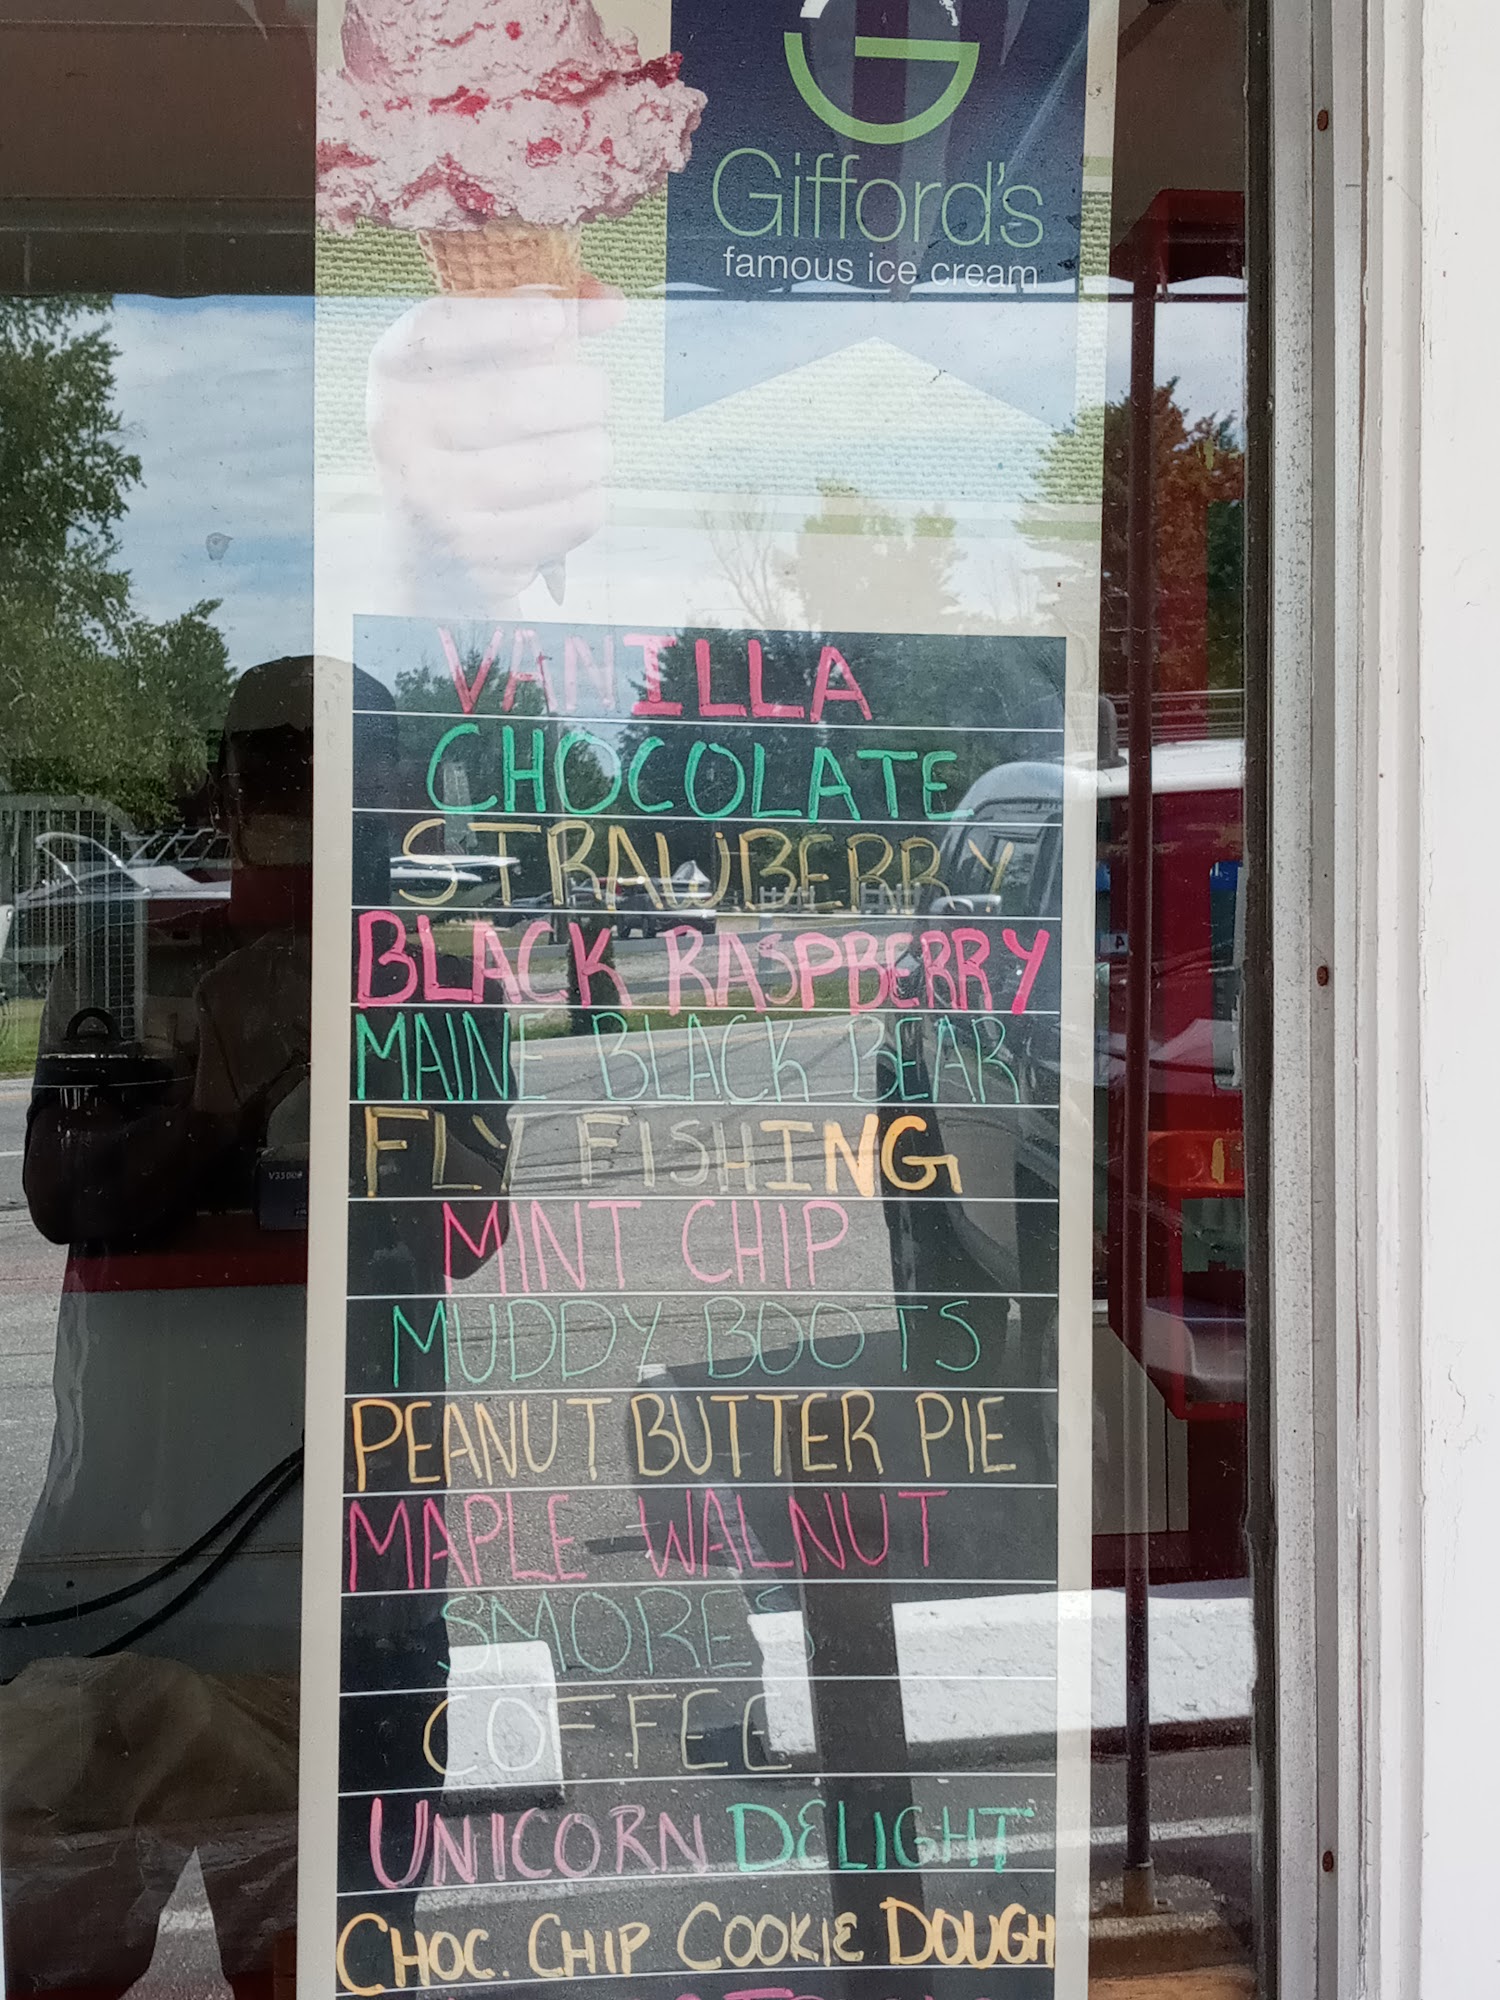 Gifford's
famous ice cream
VANILLA
CHOCOLATE
STRAWBERRY
BLACK RASPBERRY
MAINE BLACK BEAR
FLY FISHING
MINT CHIP
MUDDY BOOTS
PEANUT BUTTER PIE
MAPLE WALNUT
SMORES
COFFEE
UNICORN DELIGHT
CHOC. CHIP COOKIE DOUGH